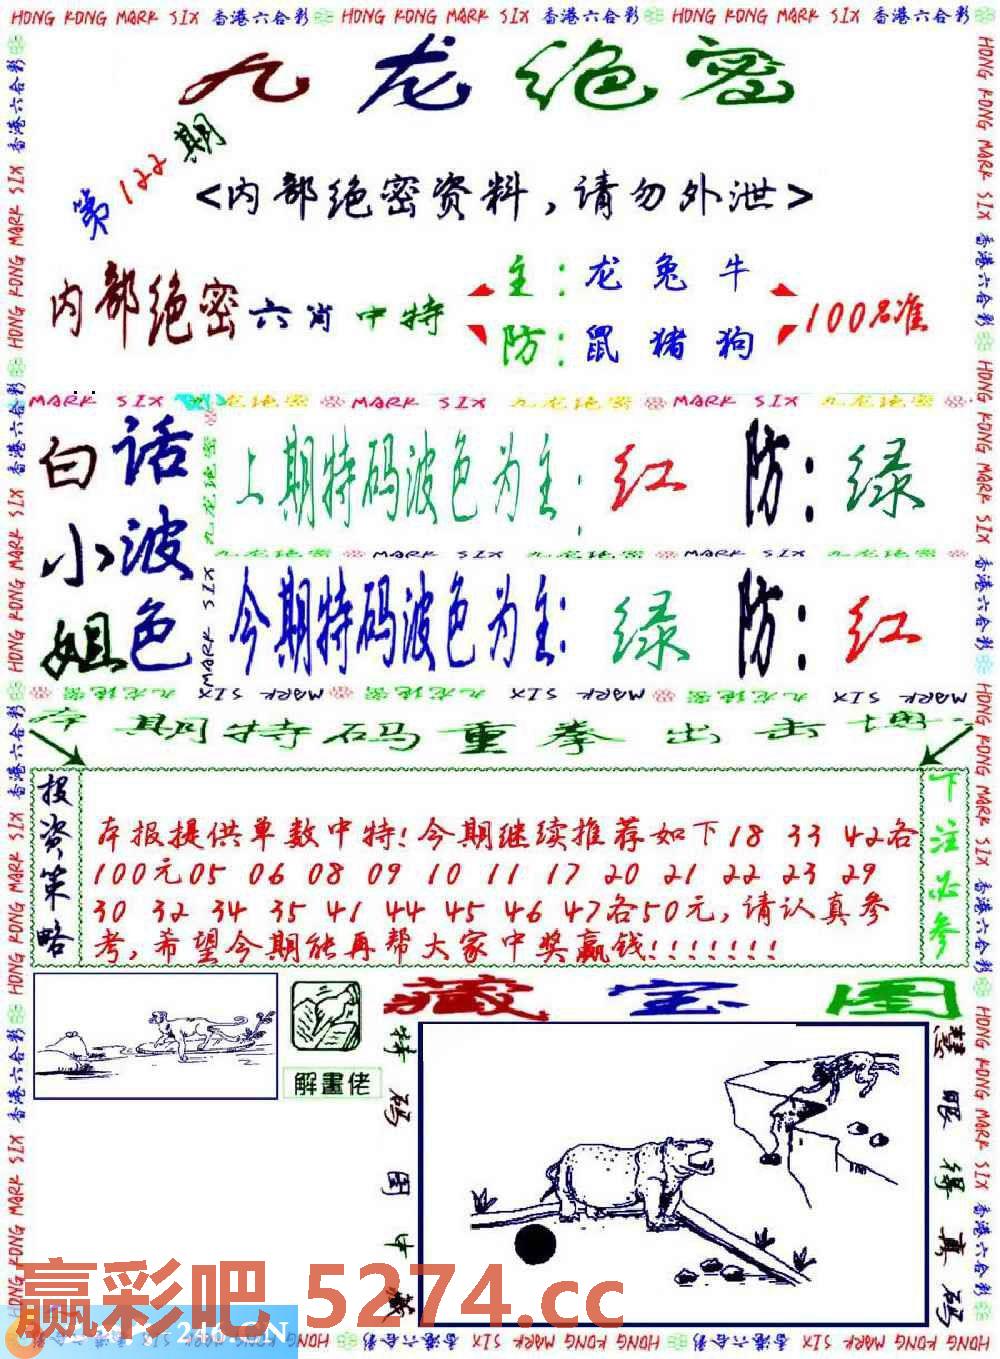 HONG KONG MARK SIX 香港六合彩 HONG KONG MARK SIX 香港六合彩 HONG KONG MARK SIX 香港六合彩
九龙绝密
第122期
<内部绝密资料,请勿外泄>
内部绝密六肖中特
主:龙兔牛
防:鼠猪狗
100%准
MARK SIX 九龙绝密 MARK SIX 九龙绝密 MARK SIX 九龙绝密
白小姐
话波色
上期特码波色为主:红 防:绿
九龙绝密 MARK SIX 九龙绝密 MARK SIX 九龙绝密
今期特码波色为主:绿 防:红
九龙绝密 MARK SIX 九龙绝密 MARK SIX 九龙绝密 MARK SIX
本期特码重拳出击
投资策略
本报提供单数中特!今期继续推荐如下18 33 42各
100元05 06 08 09 10 11 17 20 21 22 23 29
30 32 34 35 41 44 45 46 47各50元,请认真参
考,希望今期能再帮大家中奖赢钱!!!!!!!
下注必参
藏宝图
解畫佬
特码图中藏
慧眼得真码
赢彩吧 5274.cc
2461.CN